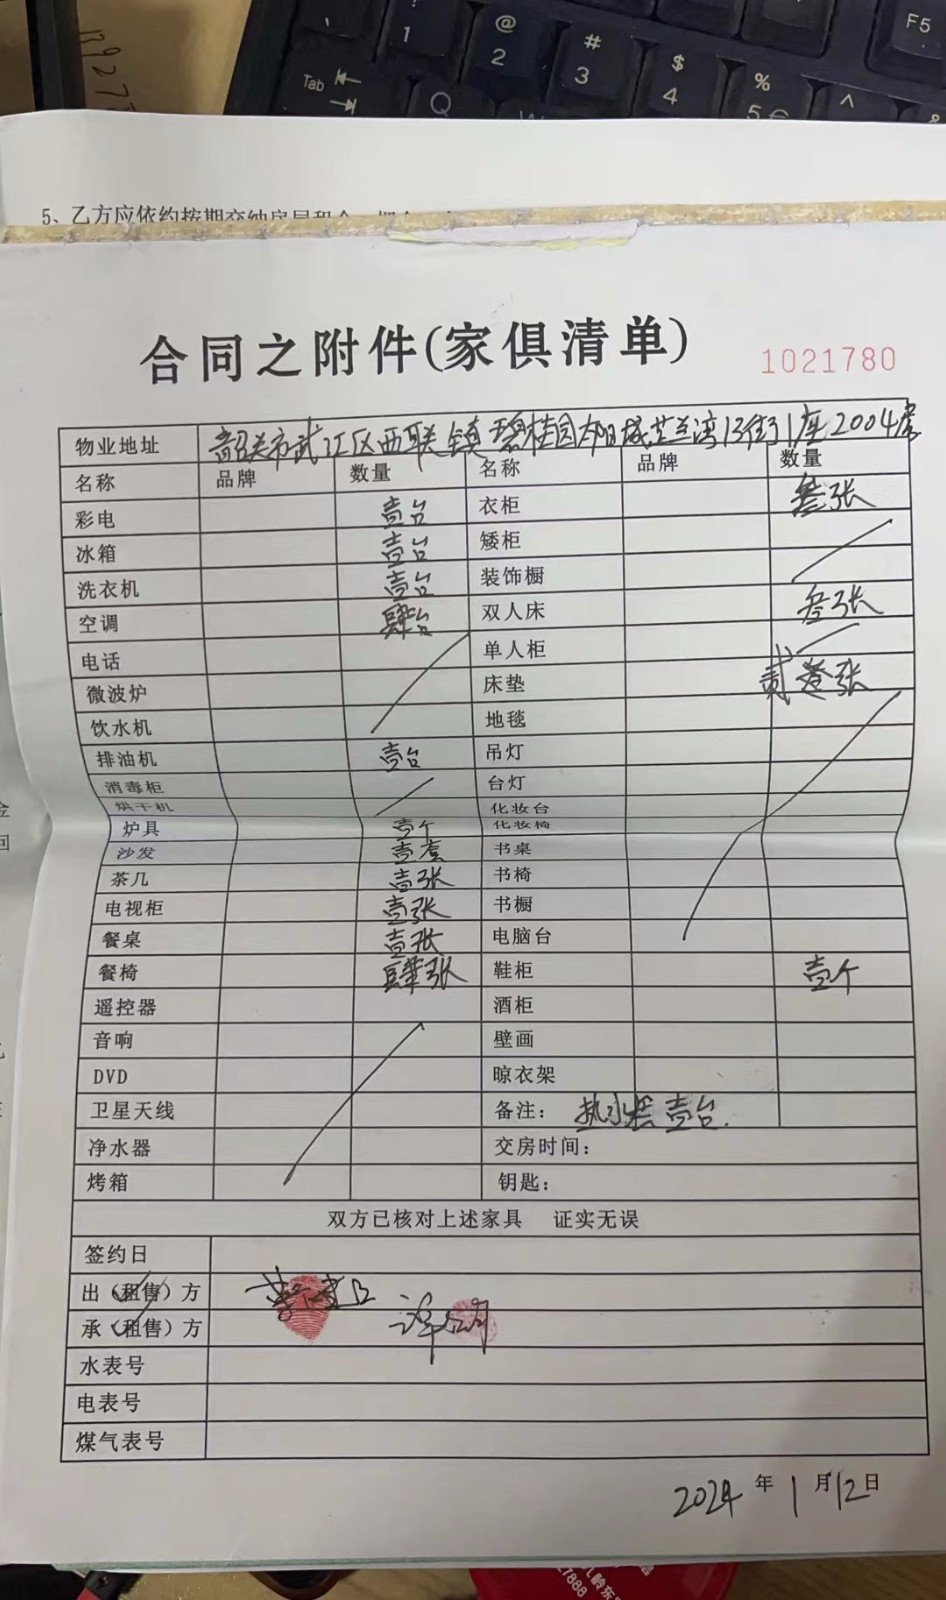 1
@
2
#
3
$
4
%
5 €
^
&
F5
Tab
Q
W
5、乙方应依约按期交纳房屋租金
合同之附件(家俱清单)
1021780
物业地址 韶关市武江区西联镇碧桂园太阳城芷兰湾13街1座2004房
名称 品牌 数量 名称 品牌 数量
彩电 壹台 衣柜 叁张
冰箱 壹台 矮柜
洗衣机 壹台 装饰橱
空调 肆台 双人床 叁张
电话 单人柜
微波炉 床垫 贰张
饮水机 地毯
排油机 壹台 吊灯
消毒柜 台灯
烘干机 化妆台
炉具 壹个 化妆椅
沙发 壹套 书桌
茶几 壹张 书椅
电视柜 壹张 书橱
餐桌 壹张 电脑台
餐椅 肆张 鞋柜 壹个
遥控器 酒柜
音响 壁画
DVD 晾衣架
卫星天线 备注: 热水器壹台.
净水器 交房时间:
烤箱 钥匙:
双方已核对上述家具 证实无误
签约日
出(租售)方
承(租售)方
水表号
电表号
煤气表号
2024 年 1 月 12 日
7888